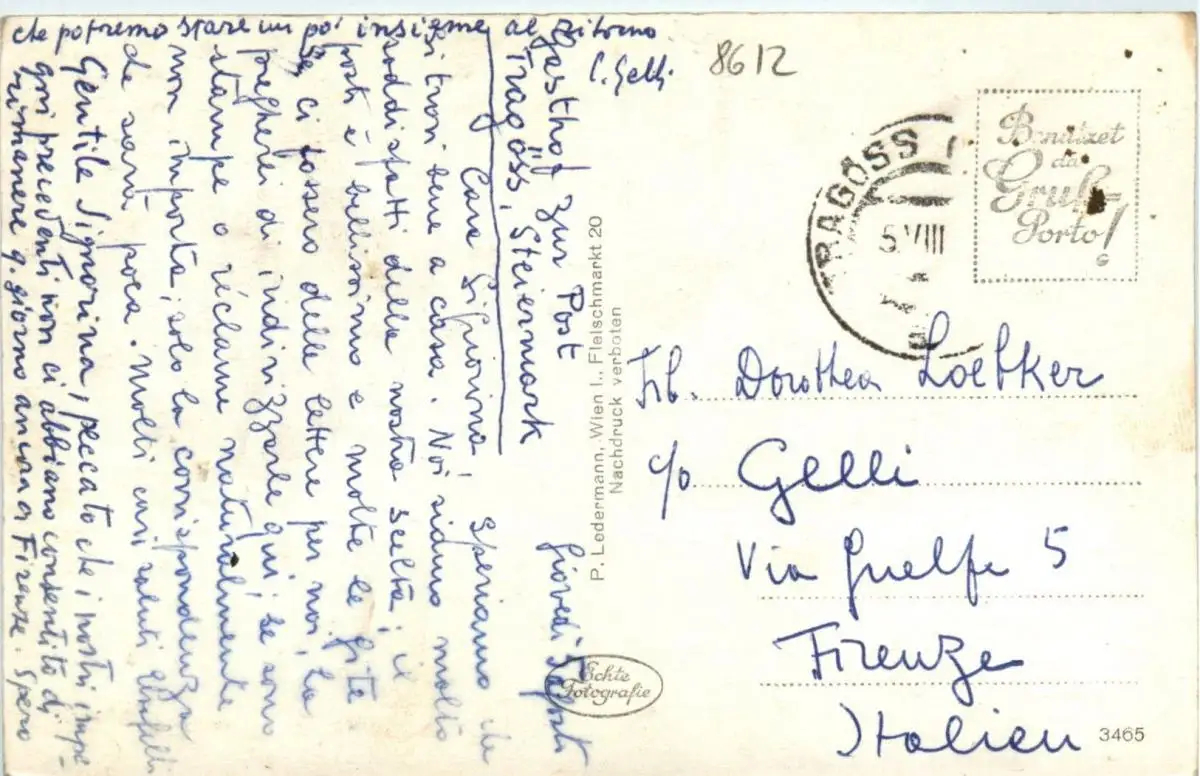 Gasthof zur Post
Tragöss, Steiermark
Giovedì
Cara Signorina, Speriamo che
si trovi bene a casa. Noi siamo molto
soddisfatti della nostra scelta; il
posto è bellissimo e molte le gite.
Se ci fossero delle lettere per noi, la
pregherei di indirizzarle qui; se sono
stampe o réclame naturalmente
non importa; solo la corrispondenza
che sarà poca. Molti cari saluti
Gentile Signorina, peccato che i nostri impe-
gni precedenti non ci abbiano consentito di
rimanere q. giorno ancora a Firenze. Spero
che potremo stare un po' insieme al ritorno
C. Gelli
8612
TRAGÖSS
5.VIII
Benützet
das
Grub-
Porto!
G
P. Ledermann, Wien I., Fleischmarkt 20
Nachdruck verboten
Echte
Fotografie
Frl. Dorothea Loebker
c/o Gelli
Via Guelfa 5
Firenze
Italien
3465